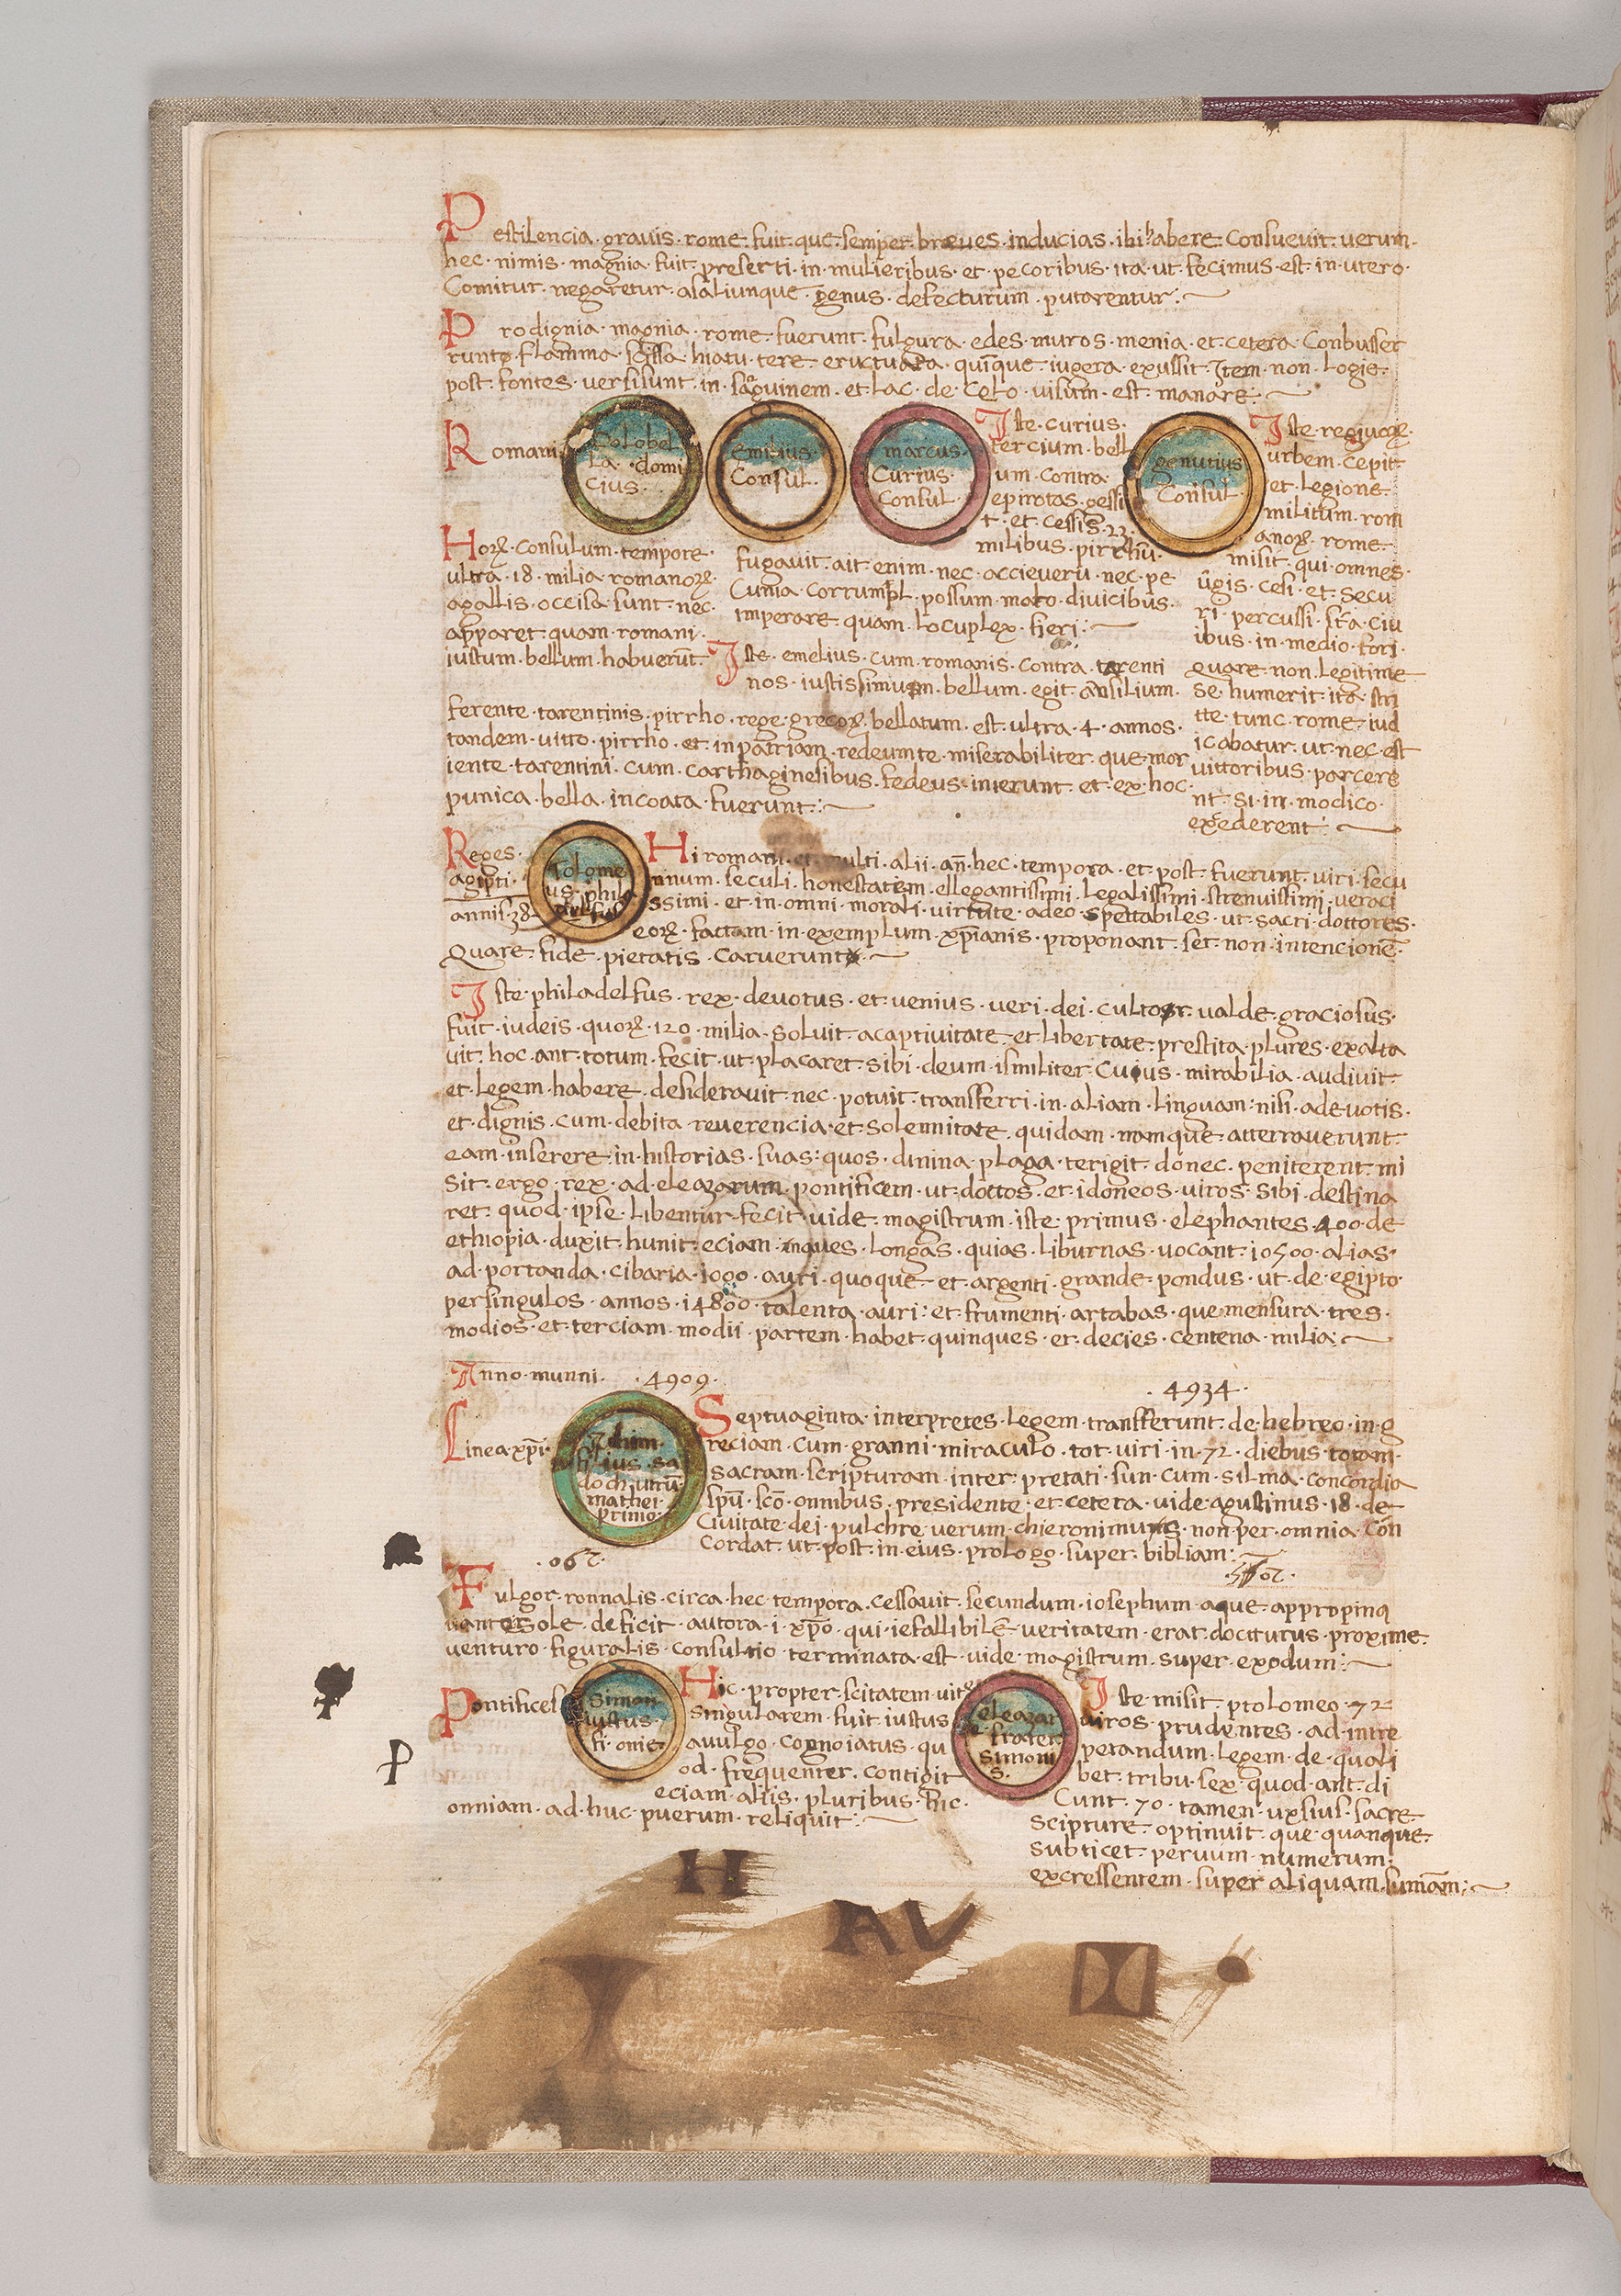 Pestilencia · gravis · rome · fuit · que · semper · breues · inducias · ibi habere · Consuevit · verum ·
hec · nimis · magnia · fuit · preserti · in · mulieribus · et · pecoribus · ita · ut · fecimus · est · in · utero ·
Comitur · negaretur · asaliunque · genus · defecturum · putarentur :
Prodignia · magnia · rome · fuerunt · fulgura · edes · muros · menia · et · cetera · Conbusser
runt · flamma · scissa · hiatu · tere · eructuata · quinque · iugera · exussit · Item · non · logie ·
post · fontes · versi sunt · in · sanguinem · et · lac · de · celo · visum · est · manare :
Romani
Dolobel
la · domi
cius ·
Emilius ·
Consul ·
marcus ·
Curius ·
Consul ·
Iste · curius ·
tercium · bell
um · contra
epirotas · gessi
t · et · cessis · 23
milibus · pirrhu ·
fugavit · ait · enim · nec · accieveru · nec · pe
Cunia · corrumpl · possum · malo · divicibus ·
imperare · quam · locuplex · fieri :
genutius
Consul ·
Iste · regiuor ·
urbem · cepit ·
et · legione ·
militum · rom
anor · rome ·
misit · qui · omnes ·
ugis · cesi · et · secu
ri · percussi · sta · ciu
ibus · in · medio · fori ·
Quare · non · legitime
se · humerit · ita · stri
tte · tunc · rome · iud
icabatur · ut · nec · est
vittoribus · parcere
nt · si · in · modico ·
excederent :
Hor · Consulum · tempore ·
ultra · 18 · milia · romanor ·
agallis · occisa · sunt · nec ·
apparet · quam · romani ·
iustum · bellum · habuerut ·
Iste · emelius · cum · romanis · contra · tarenti
nos · iustissimum · bellum · egit · ansilium ·
ferente · tarentinis · pirrho · rege · grecor · bellatum · est · ultra · 4 · annos ·
tandem · vitto · pirrho · et · in patriam · redeumte · miserabiliter · que · mor
iente · tarentini · cum · carthaginesibus · fedeus · inierunt · et · ex · hoc ·
punica · bella · incoata · fuerunt :
Reges ·
agipti ·
annis · 38 ·
Tolome
us · phila
delfus
Hi romani · et · multi · alii · an · hec · tempora · et · post · fuerunt · viri · secu
ninum · seculi · honestatem · ellegantissimi · legalissimi · strenuissimi · veraci
ssimi · et · in · omni · morali · virtute · adeo · spettabiles · ut · sacri · dottores ·
eor · factam · in · exemplum · xpianis · proponant · set · non · intencione ·
Quare · fide · pietatis · caruerunt ·
Iste · philadelfus · rex · devotus · et · venius · veri · dei · cultor · valde · graciosus ·
fuit · iudeis · quor · 120 · milia · solvit · acaptivitate · et · libertate · prestita · plures · exalta
vit · hoc · ant · totum · fecit · ut · placaret · sibi · deum · ismiliter · Cuius · mirabilia · audivit ·
et · legem · habere · desideravit · nec · potuit · transferri · in · aliam · linguam · nisi · adevotis ·
et · dignis · cum · debita · reuerencia · et · solemnitate · quidam · namque · atterraverunt ·
eam · inserere · in · historias · suas : quos · dinina · plaga · terigit · donec · peniterent · mi
sit · ergo · rex · ad · eleazarum · pontificem · ut · dottos · et · idoneos · viros · sibi · destina
ret · quod · ipse · libentur · fecit · uide · magistrum · iste · primus · elephantes · 400 · de
ethiopia · duxit · hunit · eciam · naues · longas · quias · liburnas · vocant · 10500 · alias ·
ad · portanda · cibaria · 1000 · auri · quoque · et · argenti · grande · pondus · ut · de · egipto ·
persingulos · annos · 14800 · talenta · auri · et · frumenti · artabas · que · mensura · tres ·
modios · et · terciam · modii · partem · habet · quinques · et · decies · centena · milia :
Anno · munni · · 4909 ·
· 4934 ·
Linea xpi ·
Achim ·
filius · sa
doch · utru
mathei ·
primo ·
Septuaginta · interpretes · legem · transferunt · de · hebreo · in · g
reciam · cum · granni · miraculo · tot · viri · in · 72 · diebus · totam ·
sacram · scripturam · inter · pretati · sun · cum · silma · concordia
spu · sco · omnibus · presidente · et · cetera · uide · agustinus · 18 · de
Civitate · dei · pulchre · verum · chieronimus · non · per · omnia · con
cordat · ut · post · in · eius · prologo · super · bibliam :
Fulgor · ronnalis · circa · hec · tempora · cessavit · secundum · iosephum · aque · appropinq
uante · sole · deficit · autora · i · xpo · qui · iefallibile · veritatem · erat · dociturus · proxime ·
venturo · figuralis · consultio · terminata · est · uide · magistrum · super · exodum :
Pontifices
Simon
iustus ·
fi · onie ·
Hic · propter · scitatem · vite
singularem · fuit · iustus
avulgo · cognoiatus · qu
od · frequenter · contigit
eciam · aliis · pluribus · hic ·
onniam · ad · huc · puerum · reliquit :
eleazar
frater
simoni
s ·
Iste · misit · ptolomeo · 72
viros · prudentes · ad · intre
petandum · legem · de · quali
bet · tribu · sex · quod · ant · di
Cunt · 70 · tamen · uxsius · sacre
scipture · optinuit · que · quanque ·
subticet · peruum · numerum ·
excressentem · super · aliquam · sumam :
P
H
AV
I